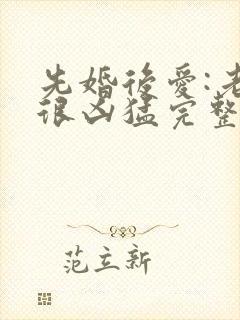 先婚後愛:老
很凶猛完整
范立新